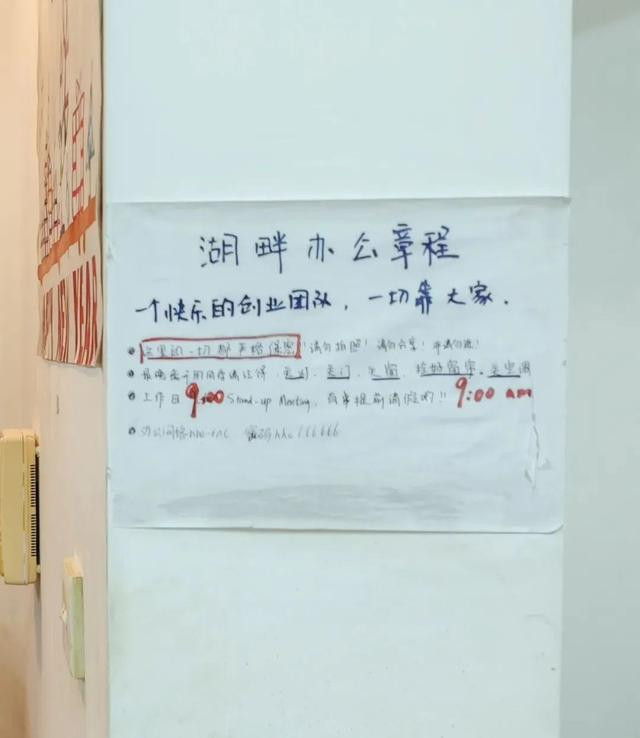 湖畔办公章程
一个快乐的创业团队，一切靠大家.
这里的一切都严格保密!请勿拍照!请勿分享!
最晚离开的同学请记得，关灯、关门、关窗、拉好窗帘、关空调
工作日9:00 Stand-up Meeting，有事提前请假哟!! 9:00 am
办公网络 密码hhc666666
YEAR